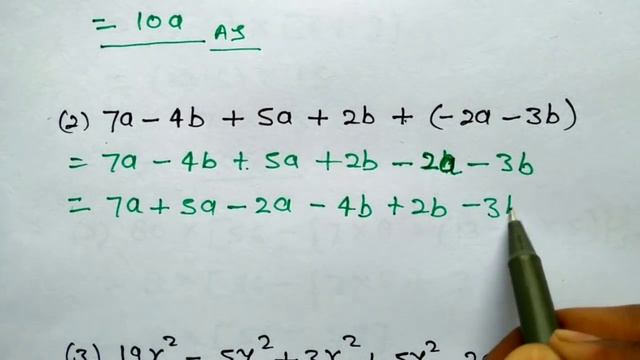 = 10a AS
(2) 7a - 4b + 5a + 2b + (-2a - 3b)
= 7a - 4b + 5a + 2b - 2a - 3b
= 7a + 5a - 2a - 4b + 2b - 3b
(3) 19x² - 5x² + 3x² + 5x²